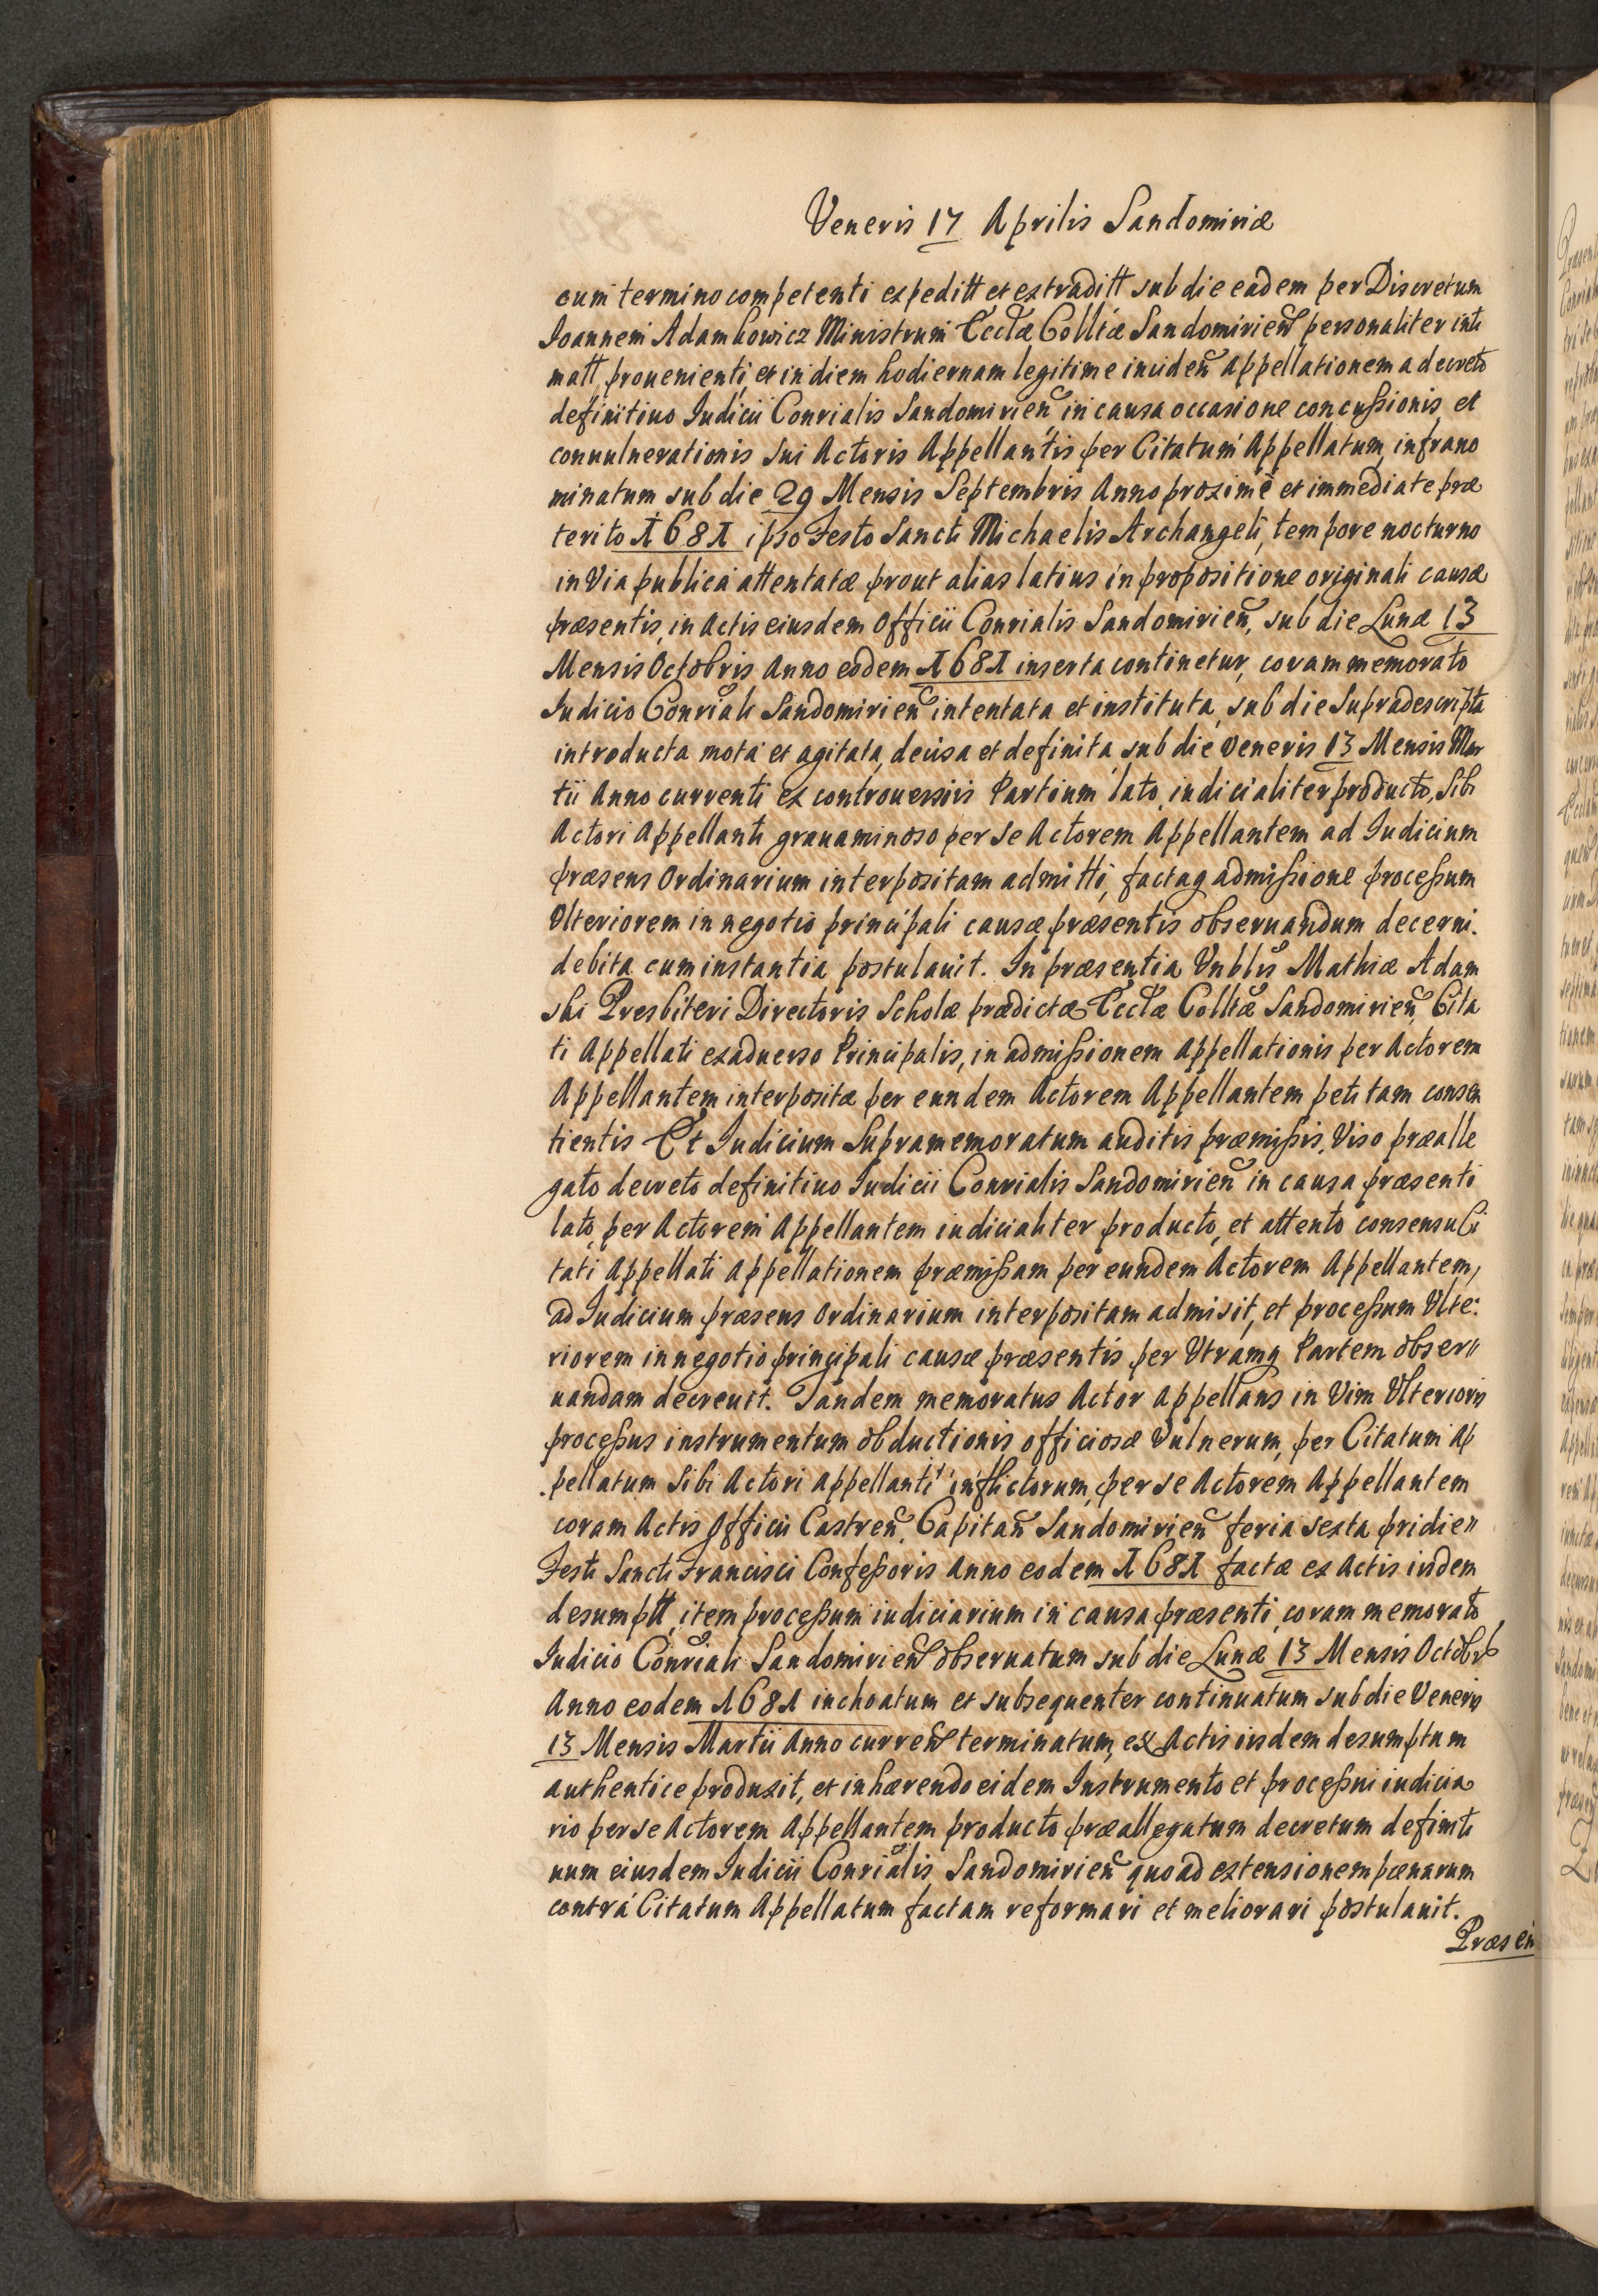 Veneris 17 Aprilis Sandomiriæ
cum termino competenti expeditt et extraditt sub die eadem per Discretum
Joannem Adamkowicz Ministrum Eccłæ Colltæ Sandomirien̄ personaliter inti
matt, prouenienti, et in diem hodiernam legitime inciden̄ Appellationem a decreto
definitiuo Iudicii Conrialis Sandomirien̄ in causa occasione concußionis et
conuulnerationis sui Actoris Appellantis per Citatum Appellatum, infrano
minatum sub die 29 Mensis Septembris Anno proxime et immediate præ
terito 1681 ipso Festo Sancti Michaelis Archangeli, tempore nocturno
in Via publica attentatæ prout alias latius in propositione originali causæ
præsentis, in Actis eiusdem Officii Conrialis Sandomirien̄, sub die Lunæ 13
Mensis Octobris Anno eodem 1681 inserta continetur, coram memorato
Iudicio Conriali Sandomirien̄ intentata et instituta, sub die Supradescripta
introducta mota et agitata, decisa et definita, sub die Veneris 13 Mensis Mar
tii Anno currenti ex controuersiis Partium lato, iudicialiter producto, Sibi
Actori Appellanti grauaminoso per se Actorem Appellantem ad Iudicium
præsens Ordinarium interpositam admitti, factaq admißione proceßum
Vlteriorem in negotio principali causæ præsentis obseruandum decerni.
debita cum instantia postulauit. In præsentia Vnblis Mathiæ Adam
ski Presbiteri Directoris Scholæ prædictæ Eccłæ Colltæ Sandomirien̄ Cita
ti Appellati ex aduerso Principalis, in admißionem Appellationis per Actorem
Appellantem interpositæ per eundem Actorem Appellantem petitam consen
tientis Et Iudicium Supramemoratum auditis præmißis, Viso præalle
gato decreto definitiuo Iudicii Conrialis Sandomirien̄ in causa præsenti
lato, per Actorem Appellantem iudicialiter producto, et attento consensu Ci
tati Appellati Appellationem præmißam per eundem Actorem Appellantem,
ad Iudicium præsens Ordinarium interpositam admisit, et proceßum Vlte:
riorem in negotio principali causæ præsentis per Vtramq Partem obser//
uandam decreuit. Tandem memoratus Actor Appellans in Vim Vlterioris
proceßus instrumentum obductionis officiosæ Vulnerum, per Citatum Ap
pellatum Sibi Actori Appellanti inflictorum, per se Actorem Appellantem
coram Actis Officii Castren̄. Capitan̄ Sandomirien̄ feria sexta pridie//
Festi Sancti Francisci Confeßoris Anno eodem 1681 factæ ex Actis iisdem
desumptt, item proceßum iudiciarium in causa præsenti, coram memorato
Iudicio Conriali Sandomirien̄ obseruatum sub die Lunæ 13 Mensis Octobr
Anno eodem 1681 inchoatum et subsequenter continuatum sub die Veneris
13 Mensis Martii Anno curren̄ terminatum, ex Actis iisdem desumptum
authentice produxit, et inhærendo eidem Instrumento et proceßui iudicia
rio per se Actorem Appellantem producto præallegatum decretum definiti
uum eiusdem Iudicii Conrialis Sandomirien̄ quo ad extensionem pœnarum
contra Citatum Appellatum factam reformari et meliorari postulauit.
Præsen